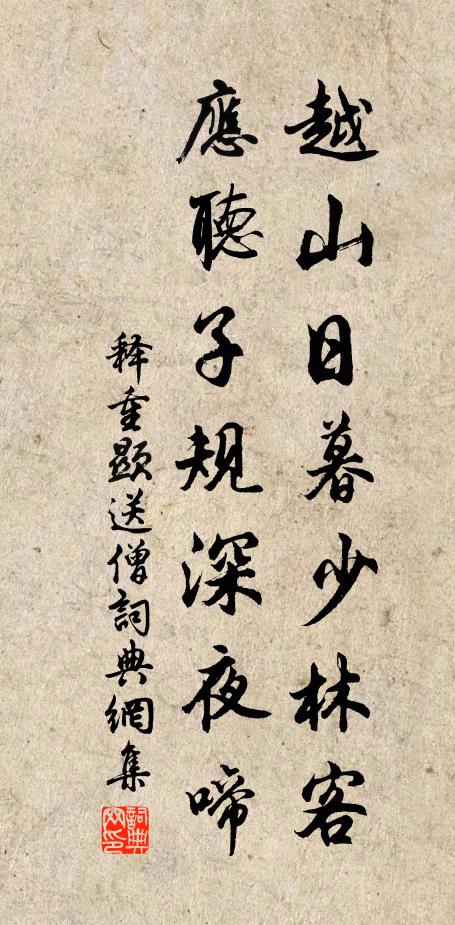 越山日暮少林客
應聽子規深夜啼
释重顯送僧詞典網集
詞典网印